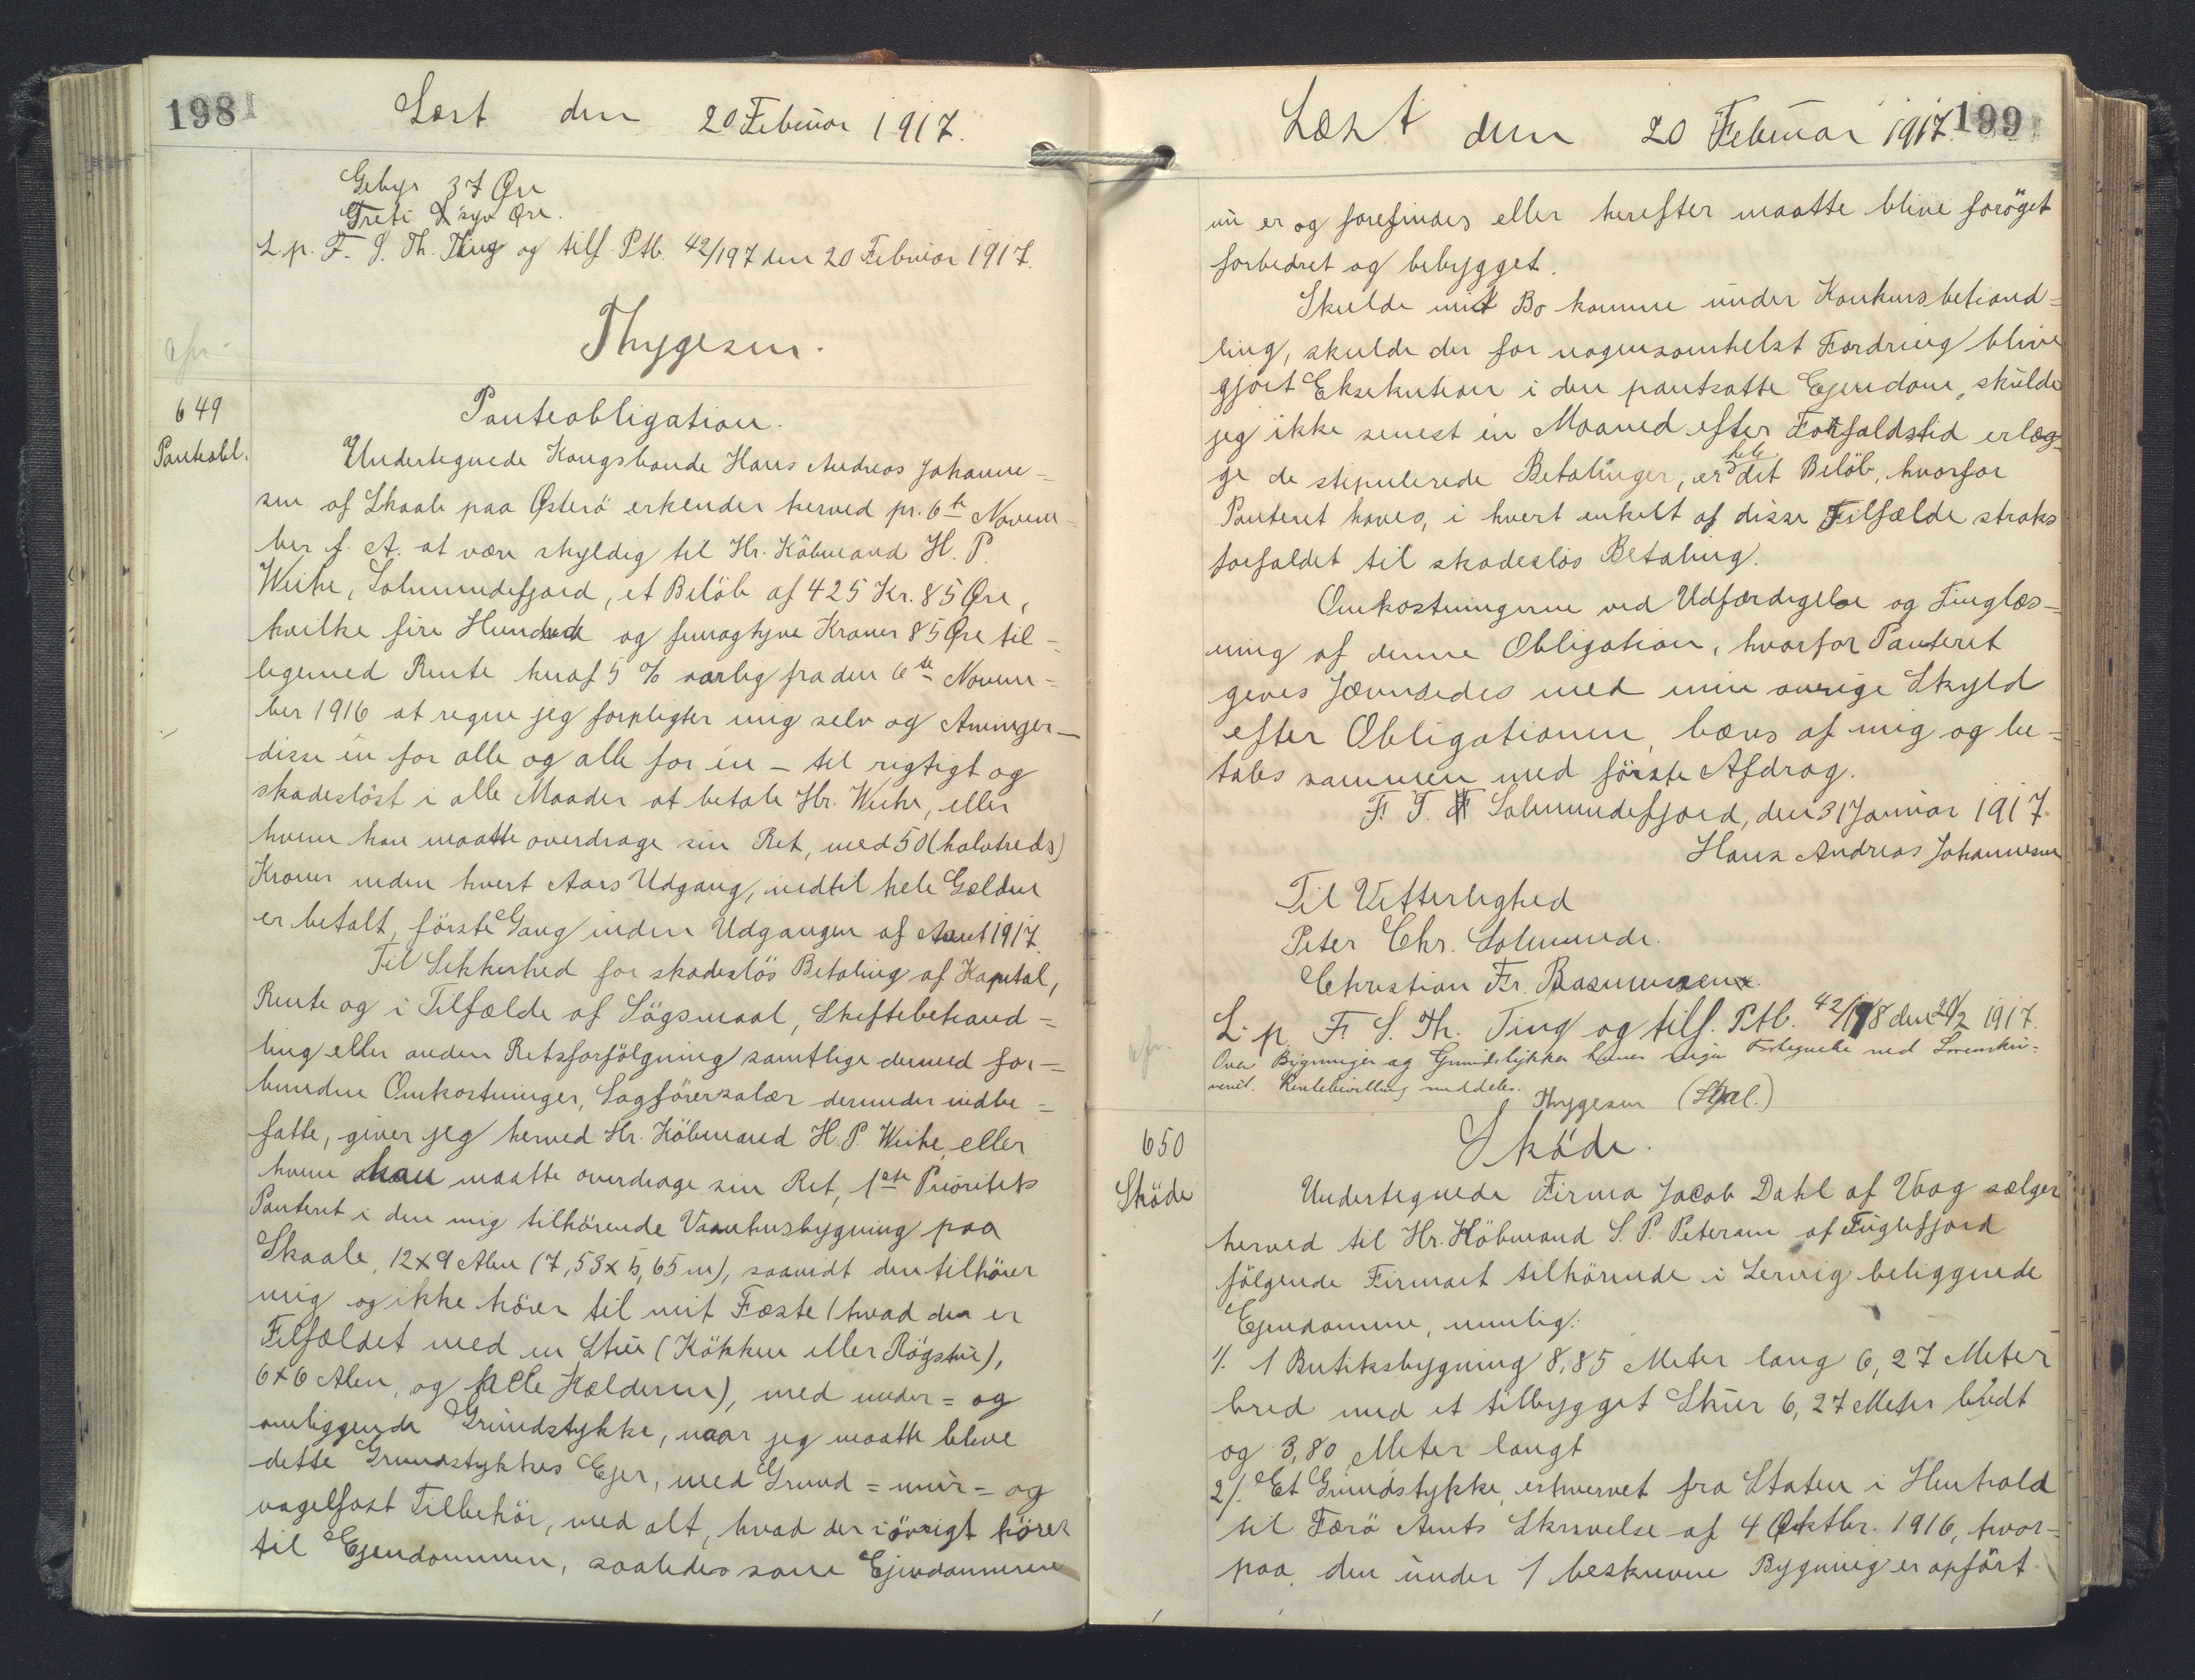 198
Læst den 20 Februar 1917.
Gebyr 37 Øre
Treti & syv Øre.
L. p. F. S. Th. Ting og tilf. Ptb. 42/197 den 20 Februar 1917.
Thygesen.
afsr.
649
Panteobl.
Panteobligation.
Undertegnede Kongsbonde Hans Andreas Johanne-
sen af Skaale paa Østerö erkender herved pr. 6te Novem-
ber f. A. at være skyldig til Hr. Köbmand H. P.
Weihe, Solmundefjord, et Belöb af 425 Kr. 85 Øre,
hvilke fire Hundrede og femogtyve Kroner 85 Øre til-
ligemed Rente heraf 5 % aarlig fra den 6te Novem-
ber 1916 at regne jeg forpligter mig selv og Arvinger—
disse en for alle og alle for en — til rigtigt og
skadeslöst i alle Maader at betale Hr. Weihe, eller
hvem han maatte overdrage sin Ret, med 50 (halvtreds)
Kroner inden hvert Aars Udgang, indtil hele Gælden
er betalt, förste Gang inden Udgangen af Aaret 1917.
Til Sikkerhed for skadeslös Betaling af Kapital,
Rente og i Tilfælde af Sögsmaal, Skiftebehand-
ling eller anden Retsforfölgning samtlige dermed for-
bundne Omkostninger, Sagförersalær derunder indbe-
fatte, giver jeg herved Hr. Köbmand H. P. Weihe, eller
hvem han maatte overdrage sin Ret, 1ste Prioritets
Panteret i den mig tilhörende Vaanhusbygning paa
Skaale, 12x9 Alen (7,53 x 5,65 m), saavidt den tilhörer
mig og ikke hörer til mit Fæste (hvad der er
Tilfældet med en Stue (Kökken eller Rögstue),
6x6 Alen, og hele Kælderen), med under= og
omliggende Grundstykke, naar jeg maatte blive
dette Grundstykkes Ejer, med Grund= mur= og
nagelfast Tilbehör, med alt, hvad der iövrigt hörer
til Ejendommen, saaledes som Ejendommene
199
Læst den 20 Februar 1917.
nu er og forefindes eller herefter maatte blive foröget
forbedret og bebygget.
Skulde mit Bo komme under Konkursbehand=
ling, skulde der for nogensomhelst Fordring blive
gjort Eksekution i den pantsatte Ejendom, skulde
jeg ikke senest en Maaned efter Forfaldstid erlæg-
ge de stipulerede Betalinger, er det hele Belöb, hvorfor
Panteret haves, i hvert enkelt af disse Tilfælde straks
forfaldet til skadeslös Betaling.
Omkostningerne ved Udfærdigelse og Tinglæs=
ning af denne Obligation, hvorfor Panteret
gives jævnsides med min övrige Skyld
efter Obligationen, bæres af mig og be=
tales sammen med förste Afdrag.
F. T. Solmundefjord, den 31 Januar 1917.
Hans Andreas Johannesen
Til Vitterlighed
Peter Chr. Solmunde.
Christian Fr. Rasmussen.
L. p. F. S. Th. Ting og tilf. Ptb. 42/198 den 20/2 1917.
Over Bygninger og Grundstykker haves ingen Fortegnelse ved Sorenskri-
veriet. Rentebevilling meddeles.
Thygesen (Segl.)
afsr.
650
Sköde
Sköde.
Undertegnede Firma Jacob Dahl af Vaag sælger
herved til Hr. Köbmand S. P. Petersen af Fuglefjord
fölgende Firmaet tilhörende i Lervig beliggende
Ejendomme, nemlig:
1/. 1 Butiksbygning 8,85 Meter lang 6,27 Meter
bred med et tilbygget Skur 6,27 Meter bredt
og 3,80 Meter langt
2/. Et Grundstykke, erhvervet fra Staten i Henhold
til Færö Amts Skrivelse af 4 Oktbr. 1916, hvor-
paa den under 1 beskrevne Bygning er opfört.